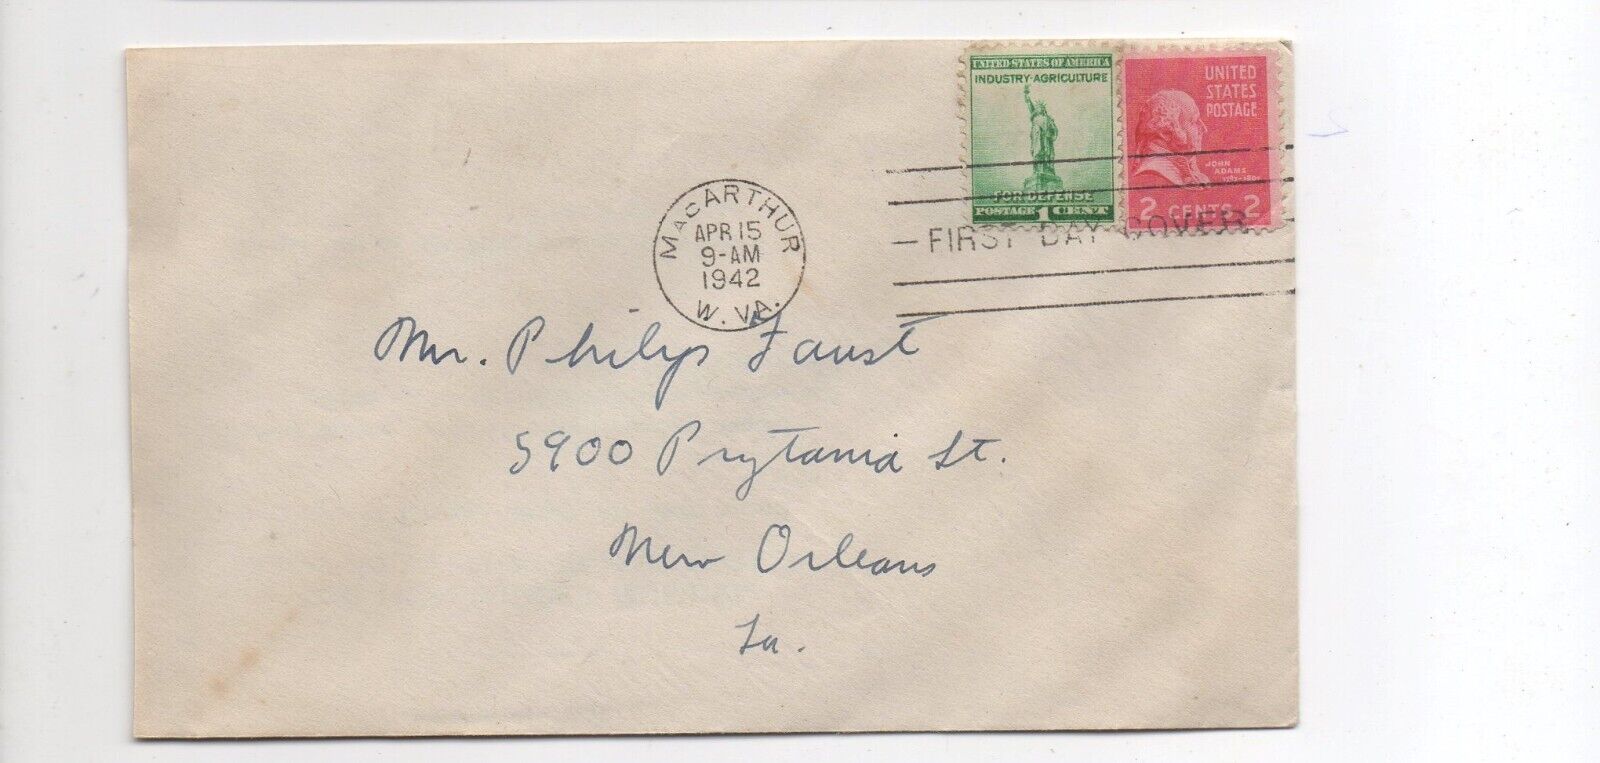 UNITED STATES OF AMERICA
INDUSTRY-AGRICULTURE
FOR DEFENSE
POSTAGE 1 CENT
UNITED
STATES
POSTAGE
JOHN
ADAMS
2 CENTS 2
MacARTHUR
APR 15
9-AM
1942
W. VA.
FIRST DAY COVER
Mr. Philip Faust
5900 Prytania St.
New Orleans
La.